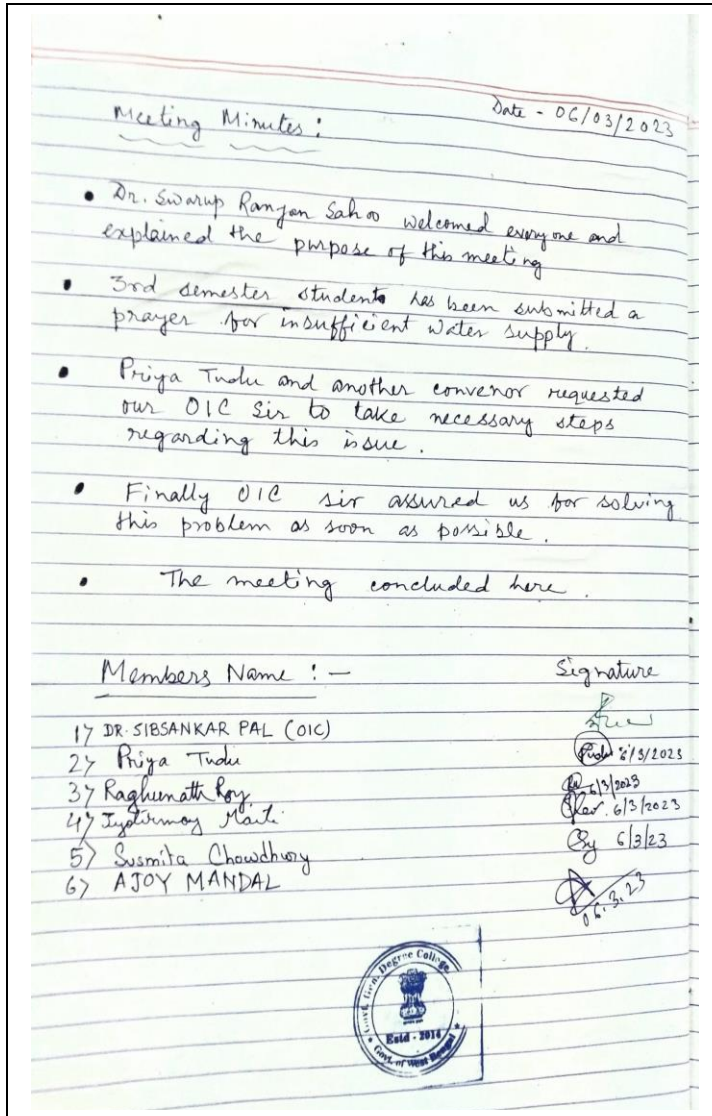 Date - 06/03/2023
Meeting Minutes :
• Dr. Swarup Ranjan Sahoo welcomed everyone and
explained the purpose of this meeting
• 3rd semester students has been submitted a
prayer for insufficient water supply.
• Priya Tudu and another convenor requested
our OIC Sir to take necessary steps
regarding this issue.
• Finally OIC sir assured us for solving
this problem as soon as possible.
• The meeting concluded here.
Members Name : —
Signature
1> DR. SIBSANKAR PAL (OIC)
2> Priya Tudu
Tudu 6/3/2023
3> Raghunath Roy
6/3/2023
4> Jyotirmoy Maiti
6/3/2023
5> Susmita Chowdhury
6/3/23
6> AJOY MANDAL
06.3.23
Govt. Gen. Degree College
Estd - 2014
Govt. of West Bengal